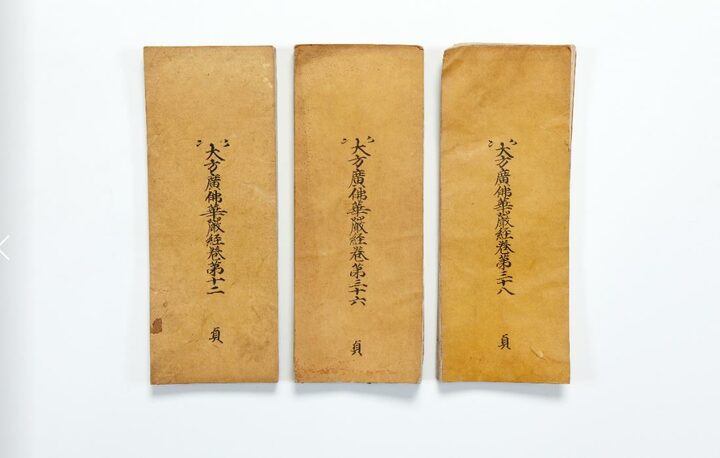 大方廣佛華嚴經卷第十二
貞
大方廣佛華嚴經卷第三十六
貞
大方廣佛華嚴經卷第三十八
貞